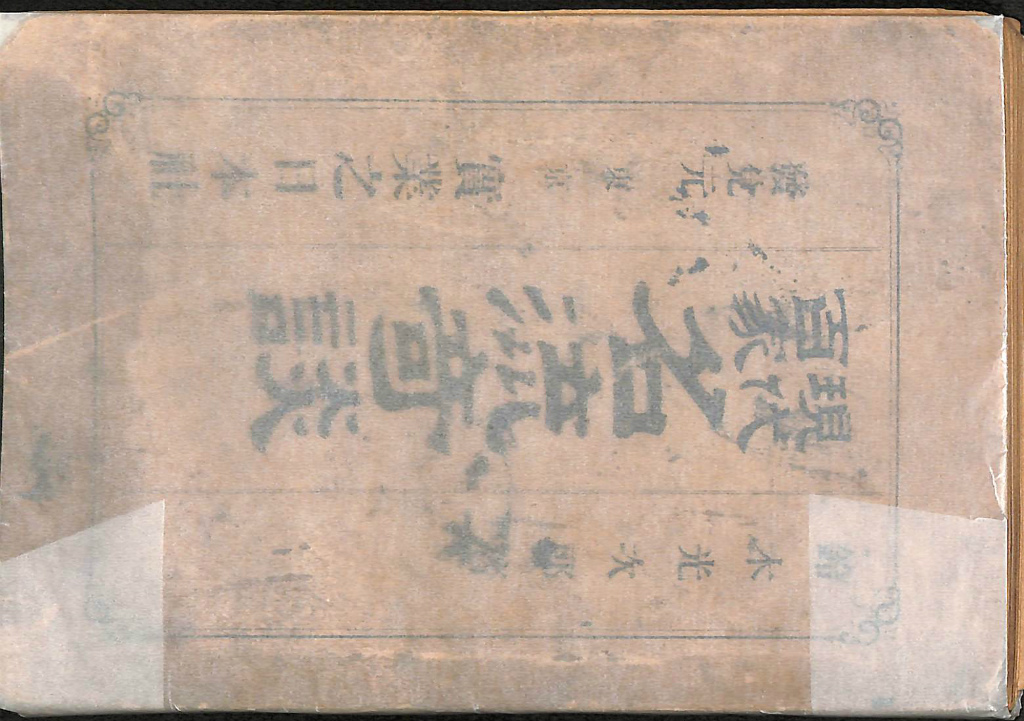 鈴木光次郎
現代百家
名流奇談
發兌元 東京 實業之日本社